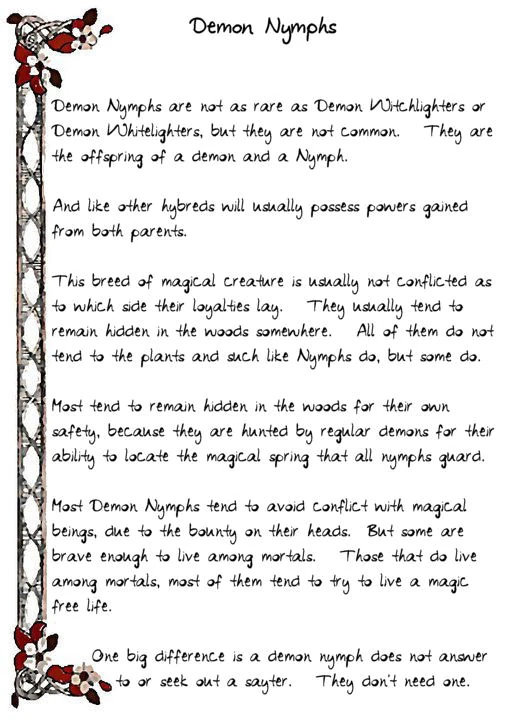 Demon Nymphs
Demon Nymphs are not as rare as Demon Witchlighters or
Demon Whitelighters, but they are not common. They are
the offspring of a demon and a Nymph.
And like other hybreds will usually possess powers gained
from both parents.
This breed of magical creature is usually not conflicted as
to which side their loyalties lay. They usually tend to
remain hidden in the woods somewhere. All of them do not
tend to the plants and such like Nymphs do, but some do.
Most tend to remain hidden in the woods for their own
safety, because they are hunted by regular demons for their
ability to locate the magical spring that all nymphs guard.
Most Demon Nymphs tend to avoid conflict with magical
beings, due to the bounty on their heads. But some are
brave enough to live among mortals. Those that do live
among mortals, most of them tend to try to live a magic
free life.
One big difference is a demon nymph does not answer
to or seek out a sayter. They don't need one.